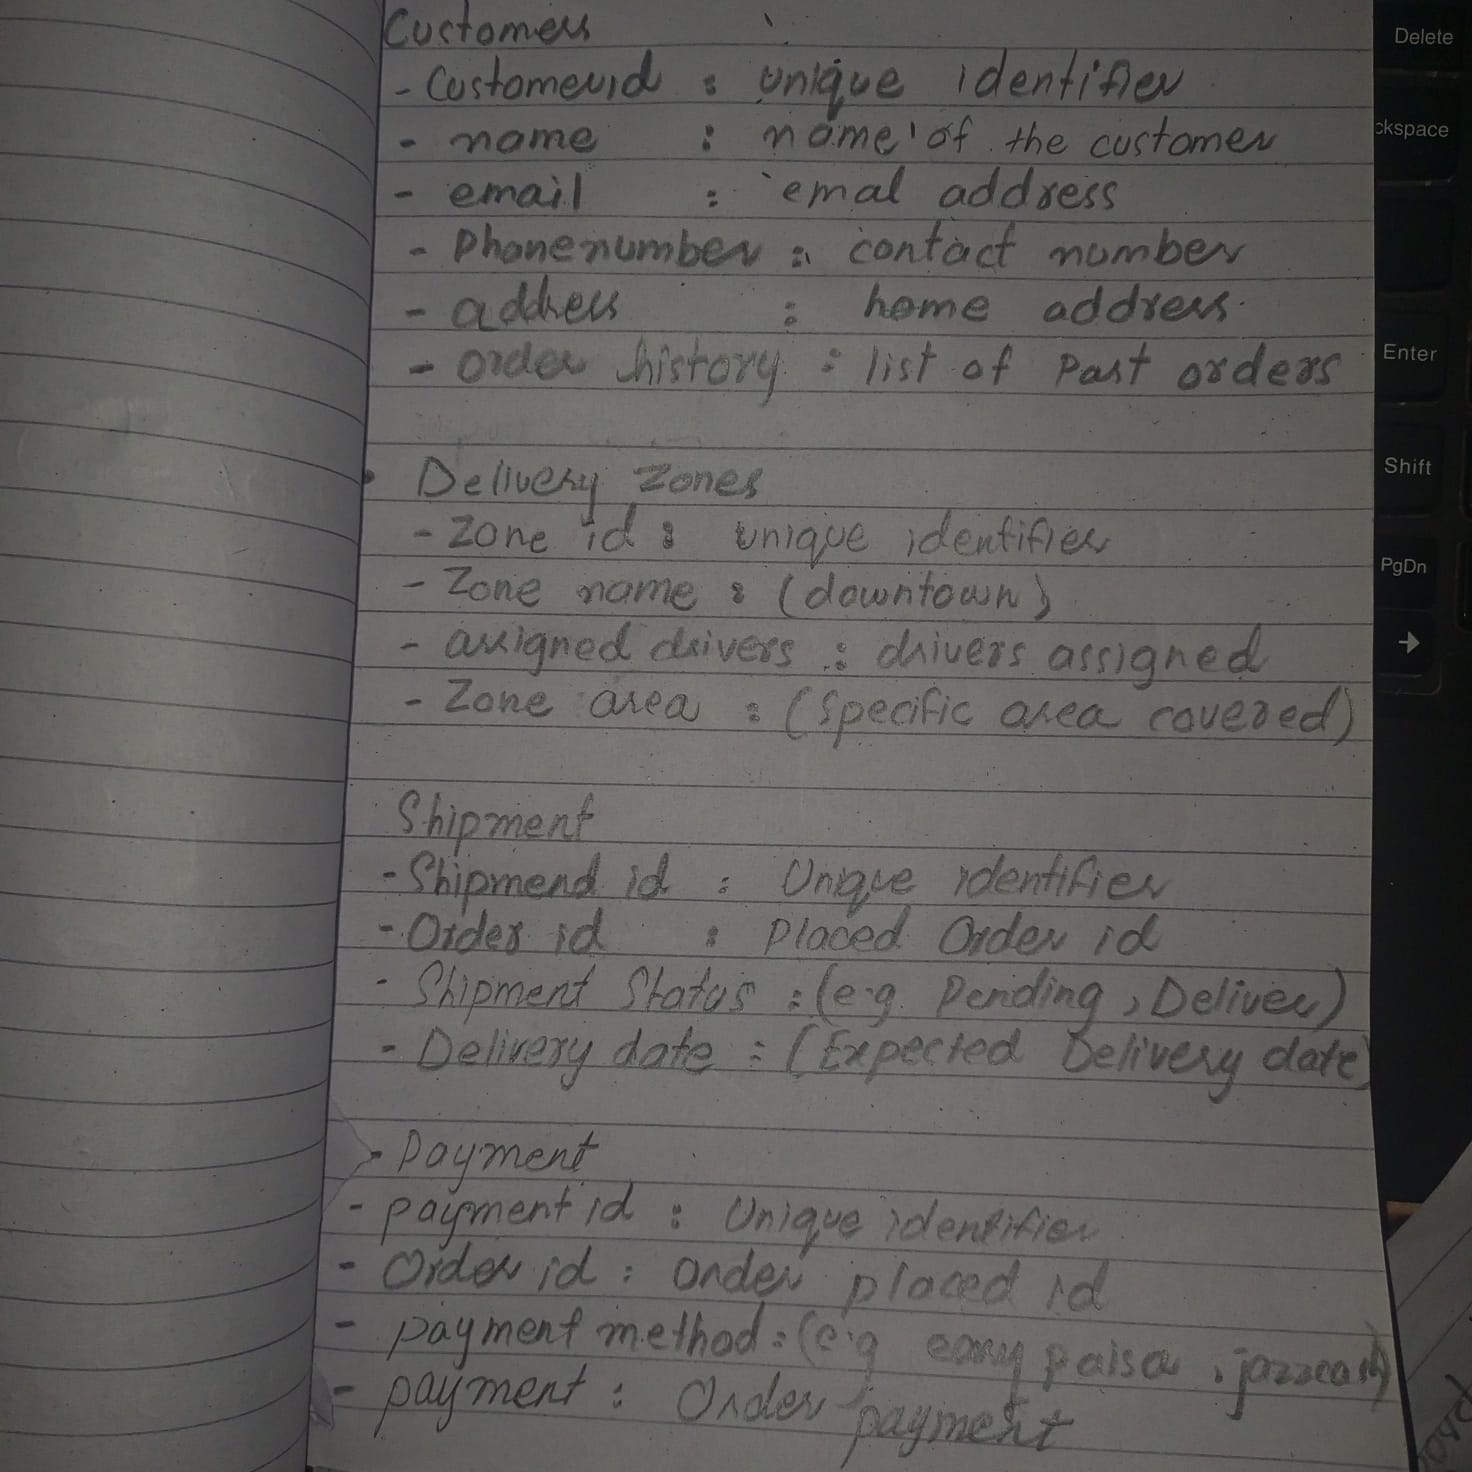 Customers
- Customerid : unique identifier
- name : name of the customer
- email : emal address
- Phonenumber : contact number
- address : home address
- order history : list of Past orders
Delivery Zones
- Zone id : unique identifier
- Zone name : (downtown)
- assigned drivers : drivers assigned
- Zone area : (Specific area covered)
Shipment
- Shipmend id : Unique identifier
- Order id : Placed Order id
- Shipment Status : (e.g. Pending, Deliver)
- Delivery date : (Expected Delivery date)
- Payment
- payment id : Unique identifier
- Order id : Order placed id
- payment method : (e.g easy paisa, jazzcash)
- payment : Order payment
Delete
ckspace
Enter
Shift
PgDn